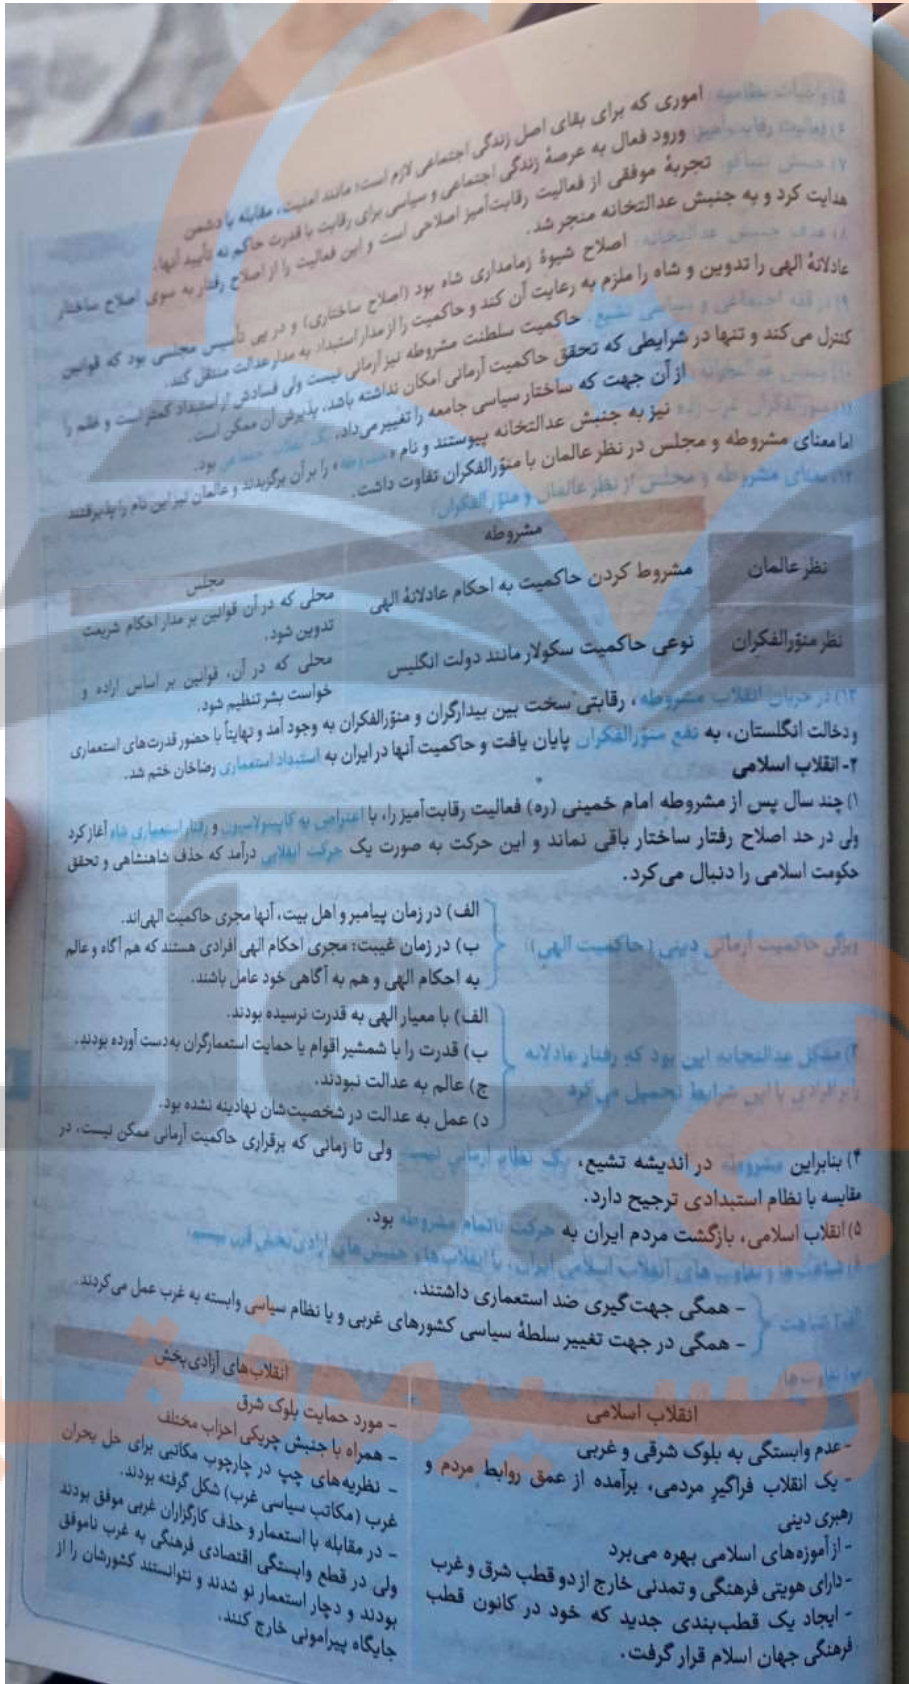 ۵) واجبات نظامیه: اموری که برای بقای اصل زندگی اجتماعی لازم است؛ مانند امنیت، مقابله با دشمن
۶) فعالیت رقابت‌آمیز: ورود فعال به عرصهٔ زندگی اجتماعی و سیاسی برای رقابت با قدرت حاکم نه تأیید آنها.
۷) جنبش تنباکو: تجربهٔ موفقی از فعالیت رقابت‌آمیز اصلاحی است و این فعالیت را از اصلاح رفتار به سوی اصلاح ساختار
هدایت کرد و به جنبش عدالتخانه منجر شد.
۸) هدف جنبش عدالتخانه: اصلاح شیوهٔ زمامداری شاه بود (اصلاح ساختاری) و در پی تأسیس مجلسی بود که قوانین
عادلانهٔ الهی را تدوین و شاه را ملزم به رعایت آن کند و حاکمیت را از مدار استبداد به مدار عدالت منتقل کند.
۹) در فقه اجتماعی و سیاسی تشیع، حاکمیت سلطنت مشروطه نیز آرمانی نیست ولی فسادش از استبداد کمتر است و ظلم را
کنترل می‌کند و تنها در شرایطی که تحقق حاکمیت آرمانی امکان نداشته باشد، پذیرش آن ممکن است.
۱۰) جنبش عدالتخانه از آن جهت که ساختار سیاسی جامعه را تغییر می‌داد، یک انقلاب اجتماعی بود.
۱۱) منورالفکران غرب‌زده نیز به جنبش عدالتخانه پیوستند و نام «مشروطه» را بر آن برگزیدند و عالمان نیز این نام را پذیرفتند
اما معنای مشروطه و مجلس در نظر عالمان با منوّرالفکران تفاوت داشت.
۱۲) معنای مشروطه و مجلس از نظر عالمان و منوّرالفکران:
مشروطه
مجلس
نظر عالمان
مشروط کردن حاکمیت به احکام عادلانهٔ الهی
محلی که در آن قوانین بر مدار احکام شریعت
تدوین شود.
نظر منوّرالفکران
نوعی حاکمیت سکولار مانند دولت انگلیس
محلی که در آن، قوانین بر اساس اراده و
خواست بشر تنظیم شود.
۱۳) در جریان انقلاب مشروطه، رقابتی سخت بین بیدارگران و منوّرالفکران به وجود آمد و نهایتاً با حضور قدرت‌های استعماری
و دخالت انگلستان، به نفع منوّرالفکران پایان یافت و حاکمیت آنها در ایران به استبداد استعماری رضاخان ختم شد.
۲- انقلاب اسلامی
۱) چند سال پس از مشروطه امام خمینی (ره) فعالیت رقابت‌آمیز را، با اعتراض به کاپیتولاسیون و رفتار استعماری شاه آغاز کرد
ولی در حد اصلاح رفتار ساختار باقی نماند و این حرکت به صورت یک حرکت انقلابی درآمد که حذف شاهنشاهی و تحقق
حکومت اسلامی را دنبال می‌کرد.
ویژگی حاکمیت آرمانی دینی (حاکمیت الهی):
الف) در زمان پیامبر و اهل بیت، آنها مجری حاکمیت الهی‌اند.
ب) در زمان غیبت؛ مجری احکام الهی افرادی هستند که هم آگاه و عالم
به احکام الهی و هم به آگاهی خود عامل باشند.
۳) مشکل عدالتخانه این بود که رفتار عادلانه
را بر افرادی با این شرایط تحمیل می‌کرد
الف) با معیار الهی به قدرت نرسیده بودند.
ب) قدرت را با شمشیر اقوام یا حمایت استعمارگران به‌دست آورده بودند.
ج) عالم به عدالت نبودند.
د) عمل به عدالت در شخصیت‌شان نهادینه نشده بود.
۴) بنابراین مشروطه در اندیشه تشیع، یک نظام آرمانی نیست ولی تا زمانی که برقراری حاکمیت آرمانی ممکن نیست، در
مقایسه با نظام استبدادی ترجیح دارد.
۵) انقلاب اسلامی، بازگشت مردم ایران به حرکت ناتمام مشروطه بود.
۶) شباهت‌ها و تفاوت‌های انقلاب اسلامی ایران، با انقلاب‌ها و جنبش‌های آزادی‌بخش قرن بیستم:
الف) شباهت
- همگی جهت‌گیری ضد استعماری داشتند.
- همگی در جهت تغییر سلطهٔ سیاسی کشورهای غربی و یا نظام سیاسی وابسته به غرب عمل می‌کردند.
ب) تفاوت‌ها:
انقلاب اسلامی
-عدم وابستگی به بلوک شرقی و غربی
- یک انقلاب فراگیرِ مردمی، برآمده از عمق روابط مردم و
رهبری دینی
- از آموزه‌های اسلامی بهره می‌برد
-دارای هویتی فرهنگی و تمدنی خارج از دو قطب شرق و غرب
- ایجاد یک قطب‌بندی جدید که خود در کانون قطب
فرهنگی جهان اسلام قرار گرفت.
انقلاب‌های آزادی‌بخش
- مورد حمایت بلوک شرق
- همراه با جنبش چریکی احزاب مختلف
- نظریه‌های چپ در چارچوب مکاتبی برای حل بحران
غرب (مکاتب سیاسی غرب) شکل گرفته بودند.
- در مقابله با استعمار و حذف کارگزاران غربی موفق بودند
ولی در قطع وابستگی اقتصادی فرهنگی به غرب ناموفق
بودند و دچار استعمار نو شدند و نتوانستند کشورشان را از
جایگاه پیرامونی خارج کنند.